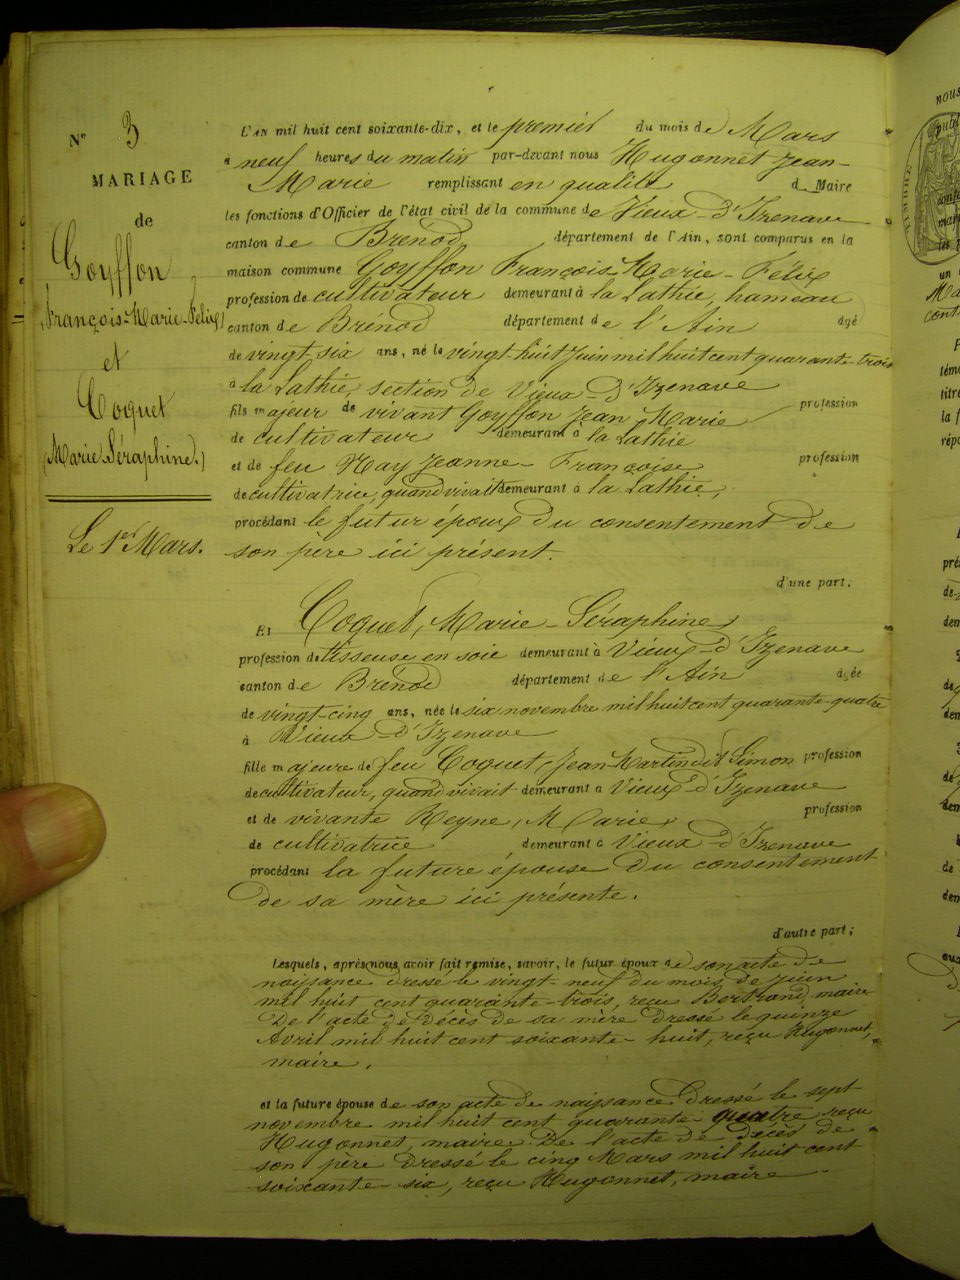 N° 3
MARIAGE
de
Goyffon
(François-Marie-Félix)
et
Coquet
(Marie Séraphine.)
Le 1er Mars.
L'AN mil huit cent soixante-dix, et le premier du mois de Mars
à neuf heures du matin par-devant nous Hugonnet Jean-
Marie remplissant en qualité de Maire
les fonctions d'Officier de l'état civil de la commune de Vieux-d'Izenave
canton de Brénod département de l'Ain, sont comparus en la
maison commune Goyffon François-Marie-Félix
profession de cultivateur demeurant à la Lathie, hameau
canton de Brénod département de l'Ain âgé
de vingt six ans, né le vingt-huit Juin mil huit cent quarante-trois
à la Lathie, section de Vieux-d'Izenave
fils majeur de vivant Goyffon Jean Marie profession
de cultivateur demeurant à la Lathie
et de feu Hay Jeanne-Françoise profession
de cultivatrice, quand vivait demeurant à la Lathie,
procédant le futur époux du consentement de
son père ici présent.
d'une part;
Et Coquet, Marie-Séraphine
profession de tisseuse en soie demeurant à Vieux-d'Izenave
canton de Brénod département de l'Ain âgée
de vingt-cinq ans, née le six novembre mil huit cent quarante-quatre
à Vieux-d'Izenave
fille majeure de feu Coquet, Jean-Martin dit Simon profession
de cultivateur, quand vivait demeurant à Vieux-d'Izenave
et de vivante Reyne, Marie profession
de cultivatrice demeurant à Vieux-d'Izenave
procédant la future épouse du consentement
de sa mère ici présente.
d'autre part;
Lesquels, après nous avoir fait remise, savoir, le futur époux de son acte de
naissance dressé le vingt-neuf du mois de juin
mil huit cent quarante-trois, reçu Bertrand, maire
De l'acte de décès de sa mère dressé le quinze
Avril mil huit cent soixante-huit, reçu Hugonnet,
maire.
et la future épouse de son acte de naissance dressé le sept
novembre mil huit cent quarante-quatre reçu
Hugonnet, maire de l'acte de décès de
son père dressé le cinq Mars mil huit cent
soixante-six, reçu Hugonnet, maire
nous
TIMBRE